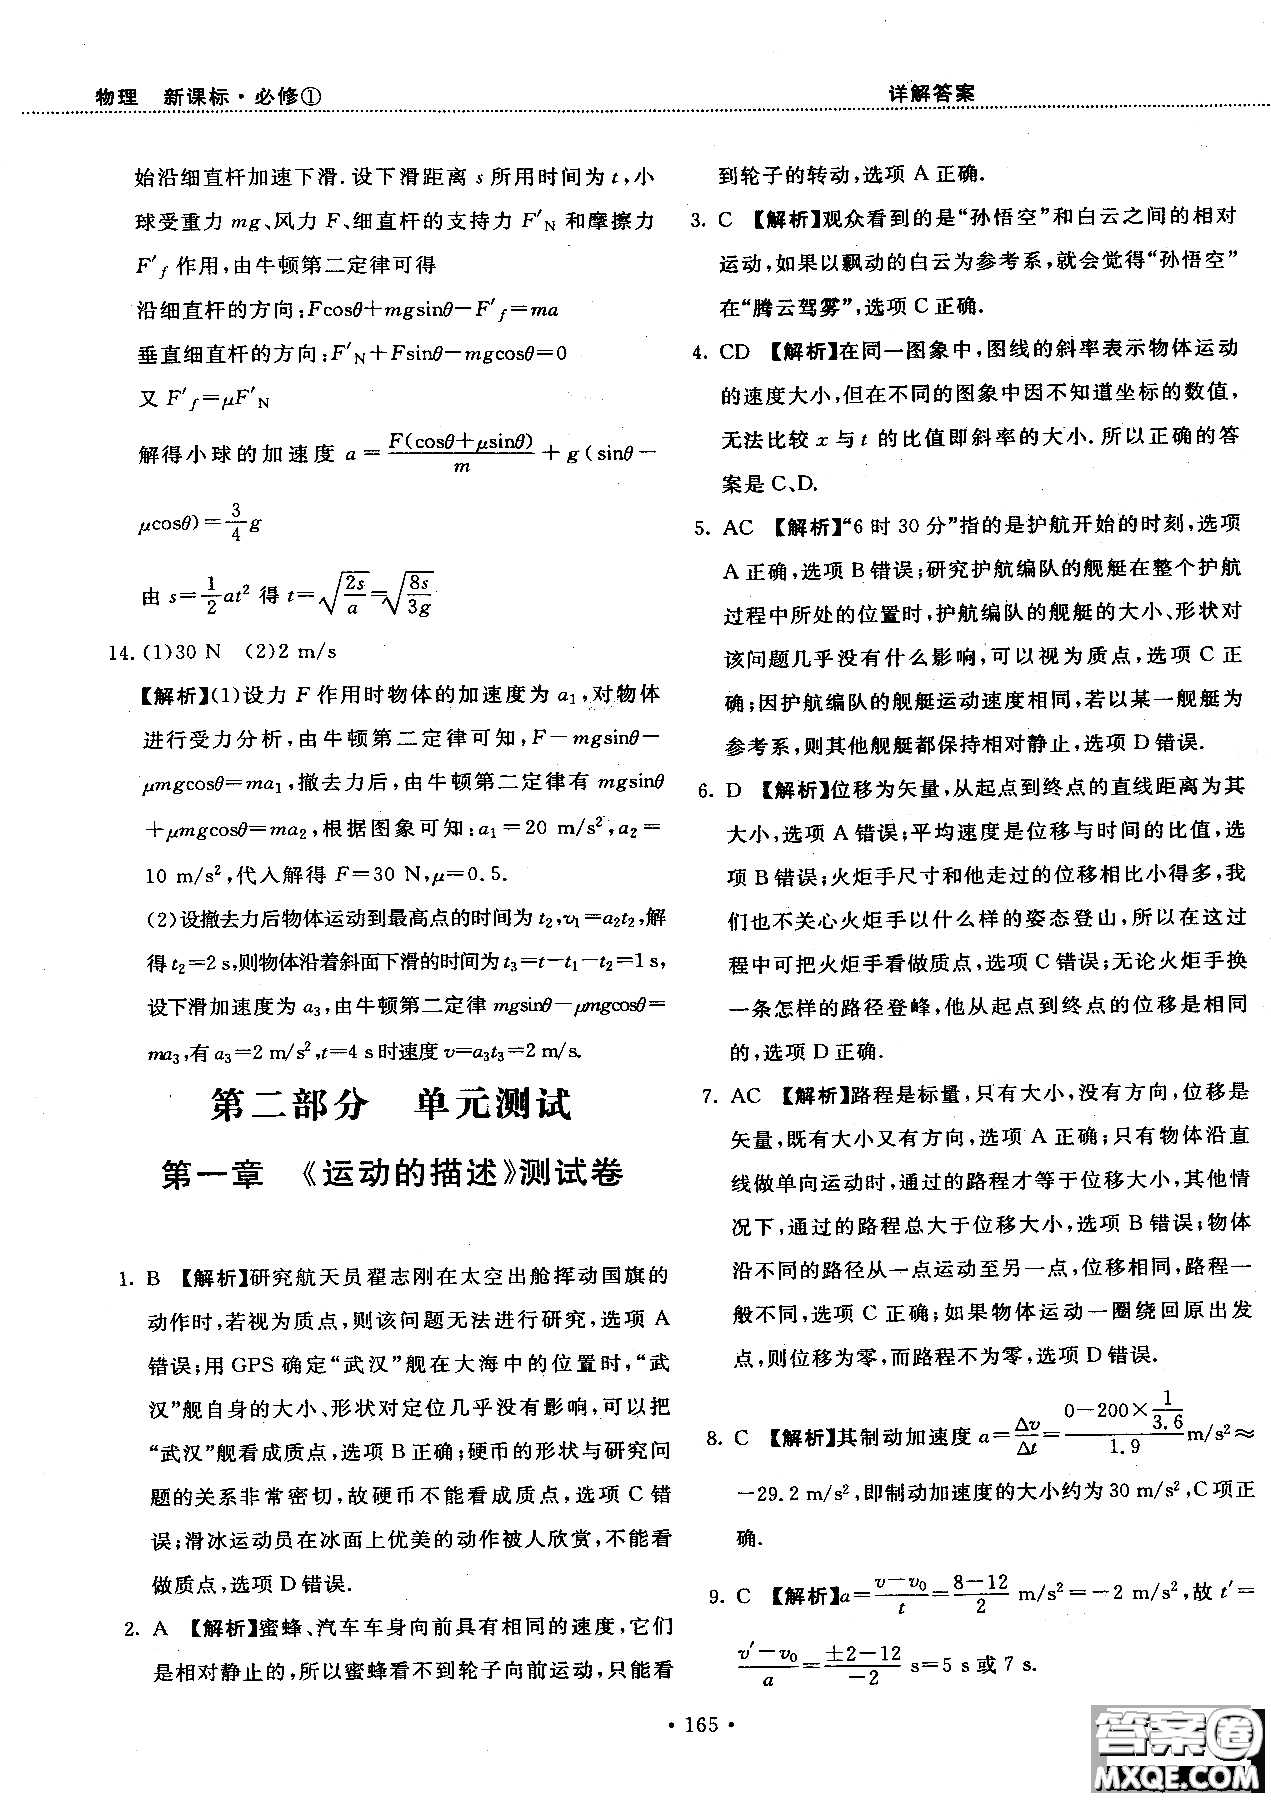 物理 新课标·必修①
详解答案
始沿细直杆加速下滑.设下滑距离 s 所用时间为 t,小
球受重力 mg、风力 F、细直杆的支持力 F′N 和摩擦力
F′f 作用,由牛顿第二定律可得
沿细直杆的方向:Fcosθ+mgsinθ−F′f=ma
垂直细直杆的方向:F′N+Fsinθ−mgcosθ=0
又 F′f=μF′N
解得小球的加速度 a=F(cosθ+μsinθ)/m+g(sinθ−
μcosθ)=3/4g
由 s=1/2at² 得 t=√(2s/a)=√(8s/3g)
14.(1)30 N (2)2 m/s
【解析】(1)设力 F 作用时物体的加速度为 a₁,对物体
进行受力分析,由牛顿第二定律可知,F−mgsinθ−
μmgcosθ=ma₁,撤去力后,由牛顿第二定律有 mgsinθ
+μmgcosθ=ma₂,根据图象可知:a₁=20 m/s²,a₂=
10 m/s²,代入解得 F=30 N,μ=0.5.
(2)设撤去力后物体运动到最高点的时间为 t₂,v₁=a₂t₂,解
得 t₂=2 s,则物体沿着斜面下滑的时间为 t₃=t−t₁−t₂=1 s,
设下滑加速度为 a₃,由牛顿第二定律 mgsinθ−μmgcosθ=
ma₃,有 a₃=2 m/s²,t=4 s 时速度 v=a₃t₃=2 m/s.
第二部分 单元测试
第一章 《运动的描述》测试卷
1. B 【解析】研究航天员翟志刚在太空出舱挥动国旗的
动作时,若视为质点,则该问题无法进行研究,选项 A
错误;用 GPS 确定“武汉”舰在大海中的位置时,“武
汉”舰自身的大小、形状对定位几乎没有影响,可以把
“武汉”舰看成质点,选项 B 正确;硬币的形状与研究问
题的关系非常密切,故硬币不能看成质点,选项 C 错
误;滑冰运动员在冰面上优美的动作被人欣赏,不能看
做质点,选项 D 错误.
2. A 【解析】蜜蜂、汽车车身向前具有相同的速度,它们
是相对静止的,所以蜜蜂看不到轮子向前运动,只能看
到轮子的转动,选项 A 正确.
3. C 【解析】观众看到的是“孙悟空”和白云之间的相对
运动,如果以飘动的白云为参考系,就会觉得“孙悟空”
在“腾云驾雾”,选项 C 正确.
4. CD 【解析】在同一图象中,图线的斜率表示物体运动
的速度大小,但在不同的图象中因不知道坐标的数值,
无法比较 x 与 t 的比值即斜率的大小.所以正确的答
案是 C、D.
5. AC 【解析】“6 时 30 分”指的是护航开始的时刻,选项
A 正确,选项 B 错误;研究护航编队的舰艇在整个护航
过程中所处的位置时,护航编队的舰艇的大小、形状对
该问题几乎没有什么影响,可以视为质点,选项 C 正
确;因护航编队的舰艇运动速度相同,若以某一舰艇为
参考系,则其他舰艇都保持相对静止,选项 D 错误.
6. D 【解析】位移为矢量,从起点到终点的直线距离为其
大小,选项 A 错误;平均速度是位移与时间的比值,选
项 B 错误;火炬手尺寸和他走过的位移相比小得多,我
们也不关心火炬手以什么样的姿态登山,所以在这过
程中可把火炬手看做质点,选项 C 错误;无论火炬手换
一条怎样的路径登峰,他从起点到终点的位移是相同
的,选项 D 正确.
7. AC 【解析】路程是标量,只有大小,没有方向,位移是
矢量,既有大小又有方向,选项 A 正确;只有物体沿直
线做单向运动时,通过的路程才等于位移大小,其他情
况下,通过的路程总大于位移大小,选项 B 错误;物体
沿不同的路径从一点运动至另一点,位移相同,路程一
般不同,选项 C 正确;如果物体运动一圈绕回原出发
点,则位移为零,而路程不为零,选项 D 错误.
8. C 【解析】其制动加速度 a=Δv/Δt=(0−200×1/3.6)/1.9 m/s²≈
−29.2 m/s²,即制动加速度的大小约为 30 m/s²,C 项正
确.
9. C 【解析】a=(v−v₀)/t=(8−12)/2 m/s²=−2 m/s²,故 t′=
(v′−v₀)/a=(±2−12)/−2 s=5 s 或 7 s.
·165·
答案圈
MXQE.COM